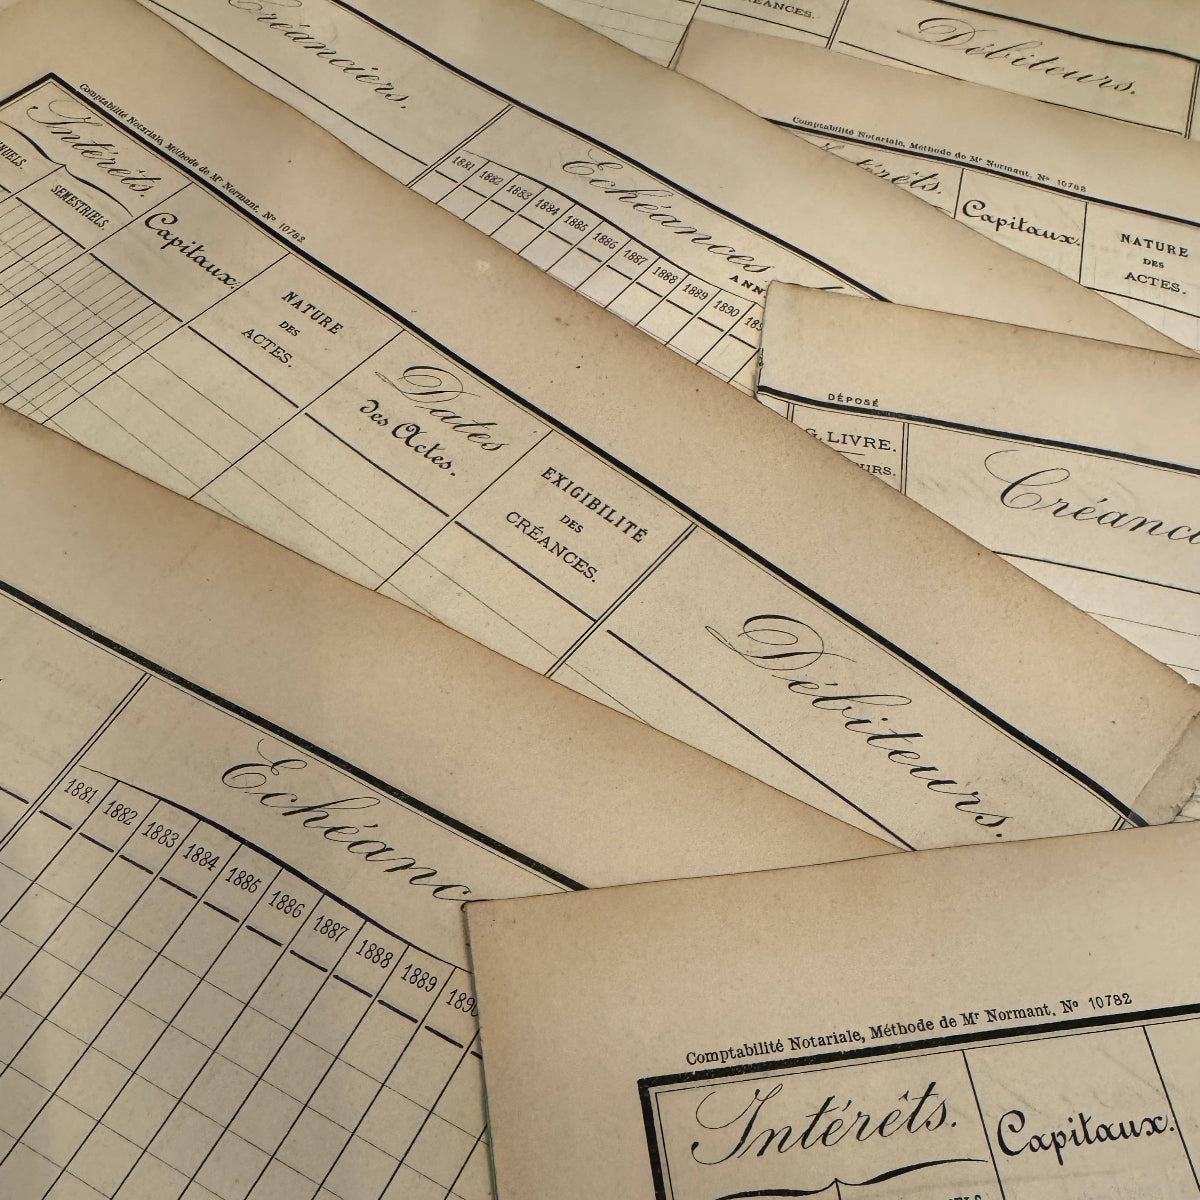 Créanciers.
CRÉANCES.
Débiteurs.
Comptabilité Notariale, Méthode de Mr Normant, No 10782
Intérêts.
SEMESTRIELS.
Capitaux.
NATURE
DES
ACTES.
Dates
des Actes.
EXIGIBILITÉ
DES
CRÉANCES.
Débiteurs.
Échéances
1881 1882 1883 1884 1885 1886 1887 1888 1889 1890
Comptabilité Notariale, Méthode de Mr Normant, No 10782
Capitaux.
NATURE
DES
ACTES.
DÉPOSÉ
LIVRE.
1881 1882 1883 1884 1885 1886 1887 1888 1889 1890
Comptabilité Notariale, Méthode de Mr Normant, No 10782
Intérêts.
Capitaux.